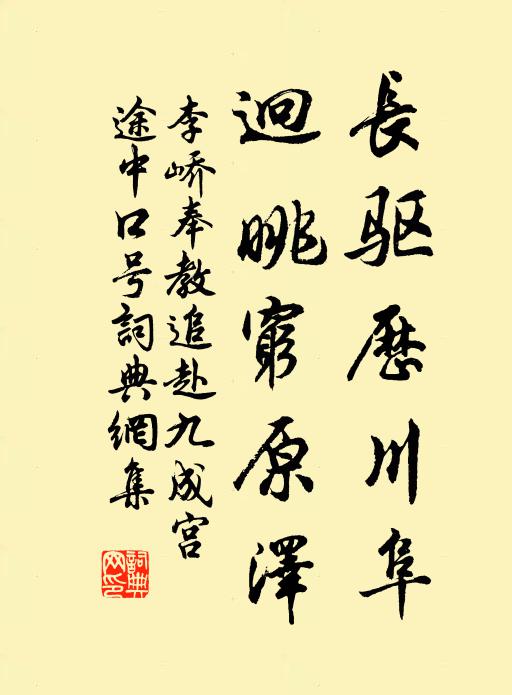 長驱歷川阜
迥眺窮原澤
李峤奉教追赴九成宫
途中口号詞典網集
詞典網印